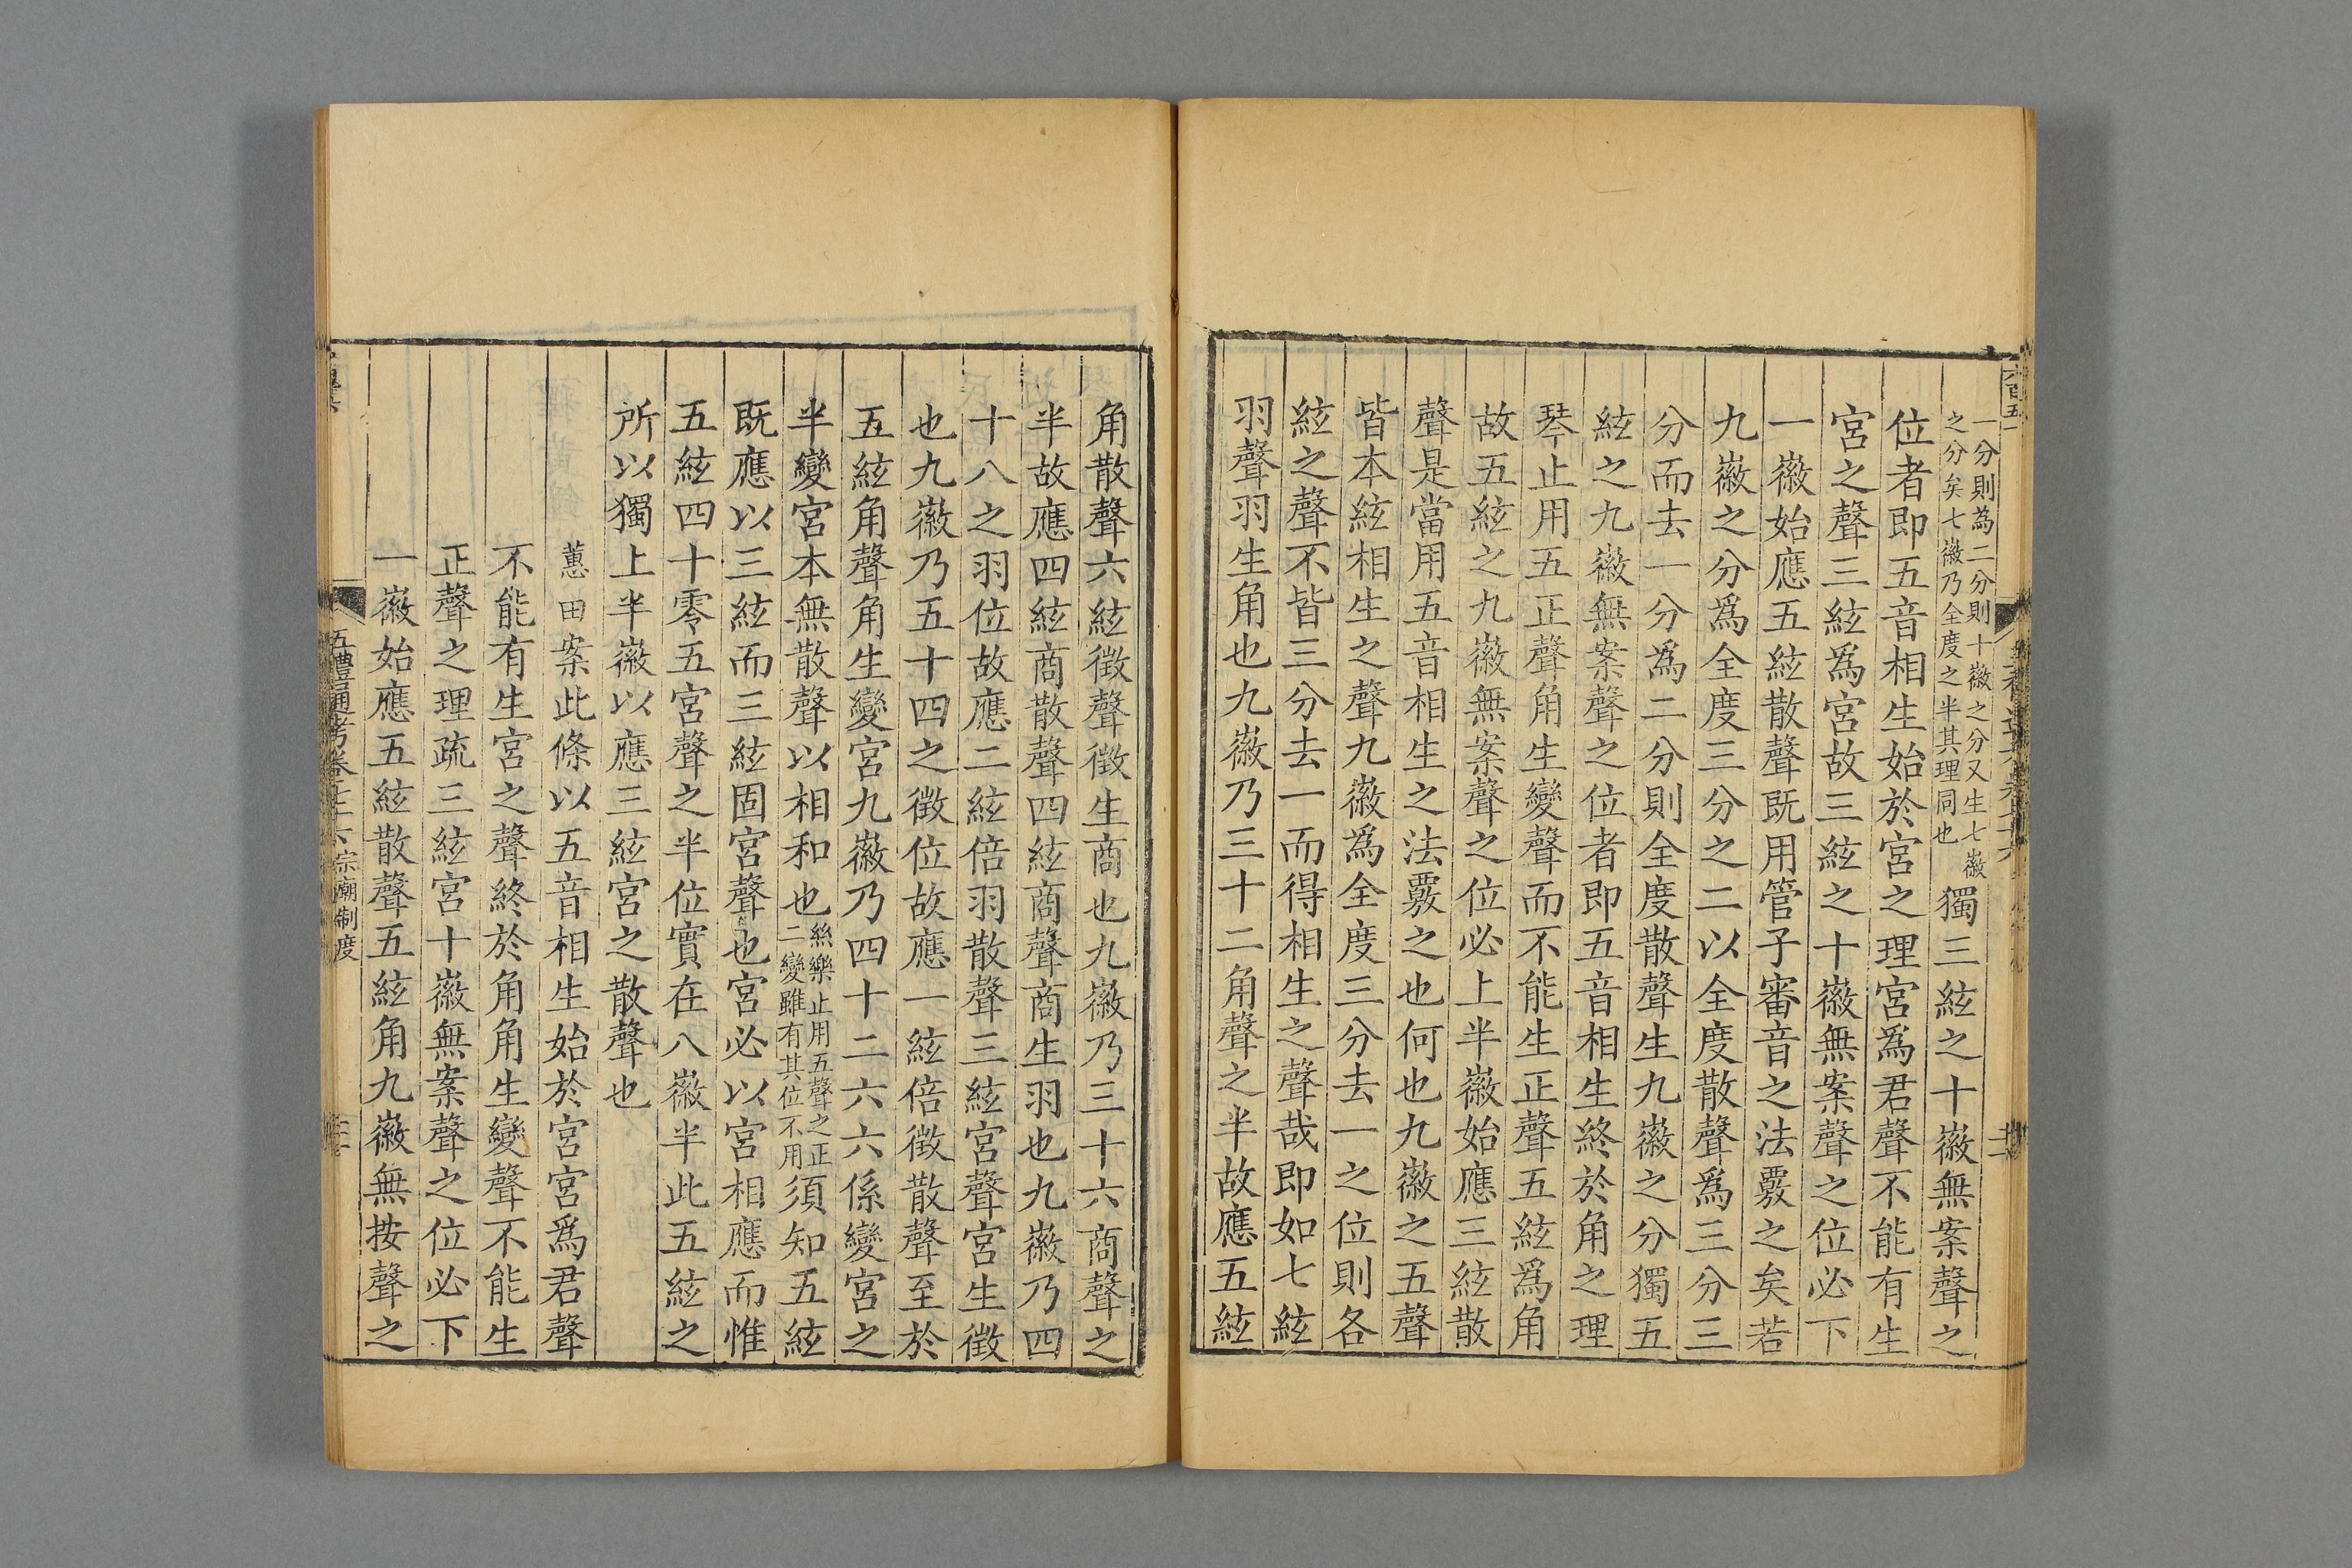 一分則為二分則十徽之分又生七徽
之分矣七徽乃全度之半其理同也
獨三絃之十徽無案聲之
位者即五音相生始於宮之理宮爲君聲不能有生
宮之聲三絃爲宮故三絃之十徽無案聲之位必下
一徽始應五絃散聲既用管子審音之法覈之矣若
九徽之分爲全度三分之二以全度散聲爲三分三
分而去一分爲二分則全度散聲生九徽之分獨五
絃之九徽無案聲之位者即五音相生終於角之理
琴止用五正聲角生變聲而不能生正聲五絃爲角
故五絃之九徽無案聲之位必上半徽始應三絃散
聲是當用五音相生之法覈之也何也九徽之五聲
皆本絃相生之聲九徽爲全度三分去一之位則各
絃之聲不皆三分去一而得相生之聲哉即如七絃
羽聲羽生角也九徽乃三十二角聲之半故應五絃
角散聲六絃徵聲徵生商也九徽乃三十六商聲之
半故應四絃商散聲四絃商聲商生羽也九徽乃四
十八之羽位故應二絃倍羽散聲三絃宮聲宮生徵
也九徽乃五十四之徵位故應一絃倍徵散聲至於
五絃角聲角生變宮九徽乃四十二六六係變宮之
半變宮本無散聲以相和也
絲樂止用五聲之正
二變雖有其位不用
須知五絃
既應以三絃而三絃固宮聲也宮必以宮相應而惟
五絃四十零五宮聲之半位實在八徽半此五絃之
所以獨上半徽以應三絃宮之散聲也
蕙田案此條以五音相生始於宮宮爲君聲
不能有生宮之聲終於角角生變聲不能生
正聲之理疏三絃宮十徽無案聲之位必下
一徽始應五絃散聲五絃角九徽無按聲之
五禮通考卷七十六宗廟制度